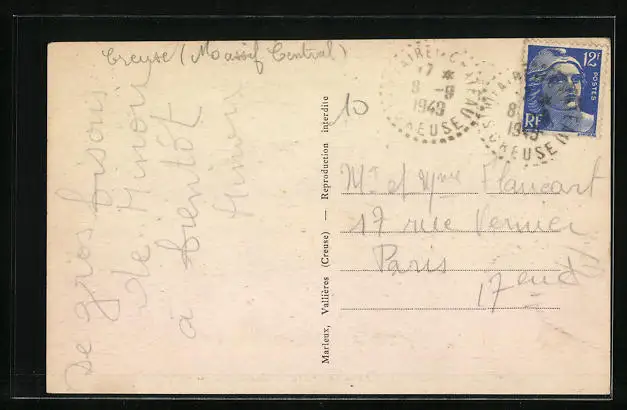 Creuse (Massif Central)
De gros bisous
de Minou
à bientôt
Mimou
Marleux, Vallières (Creuse) — Reproduction interdite
10
17 *
8 - 9
1949
CREUSE
12F
POSTES
RF
1949
CREUSE
Mr et Mme Flancart
17 rue Vernier
Paris
17